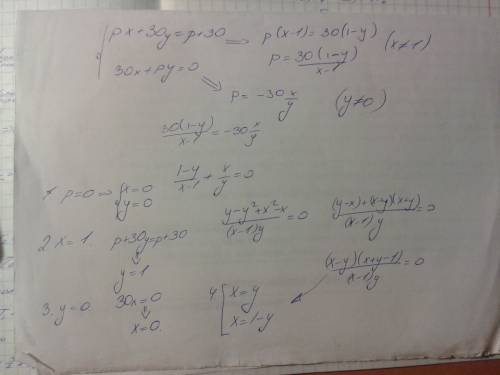 { px+30y=p+30 ⇒ p(x-1)=30(1-y) (x≠1)
p = 30(1-y)/(x-1)
30x+py=0 ⇒ p = -30 x/y (y≠0)
30(1-y)/(x-1) = -30 x/y
1. p=0 ⇒ { x=0 y=0
(1-y)/(x-1) + x/y = 0
(y-y²+x²-x)/((x-1)y) = 0
((y-x)+(x-y)(x+y))/((x-1)y) = 0
2. x=1. p+30y=p+30
↓
y=1
((x-y)(x+y-1))/((x-1)y) = 0
3. y=0. 30x=0
↓
x=0.
4. [ x=y
x=1-y